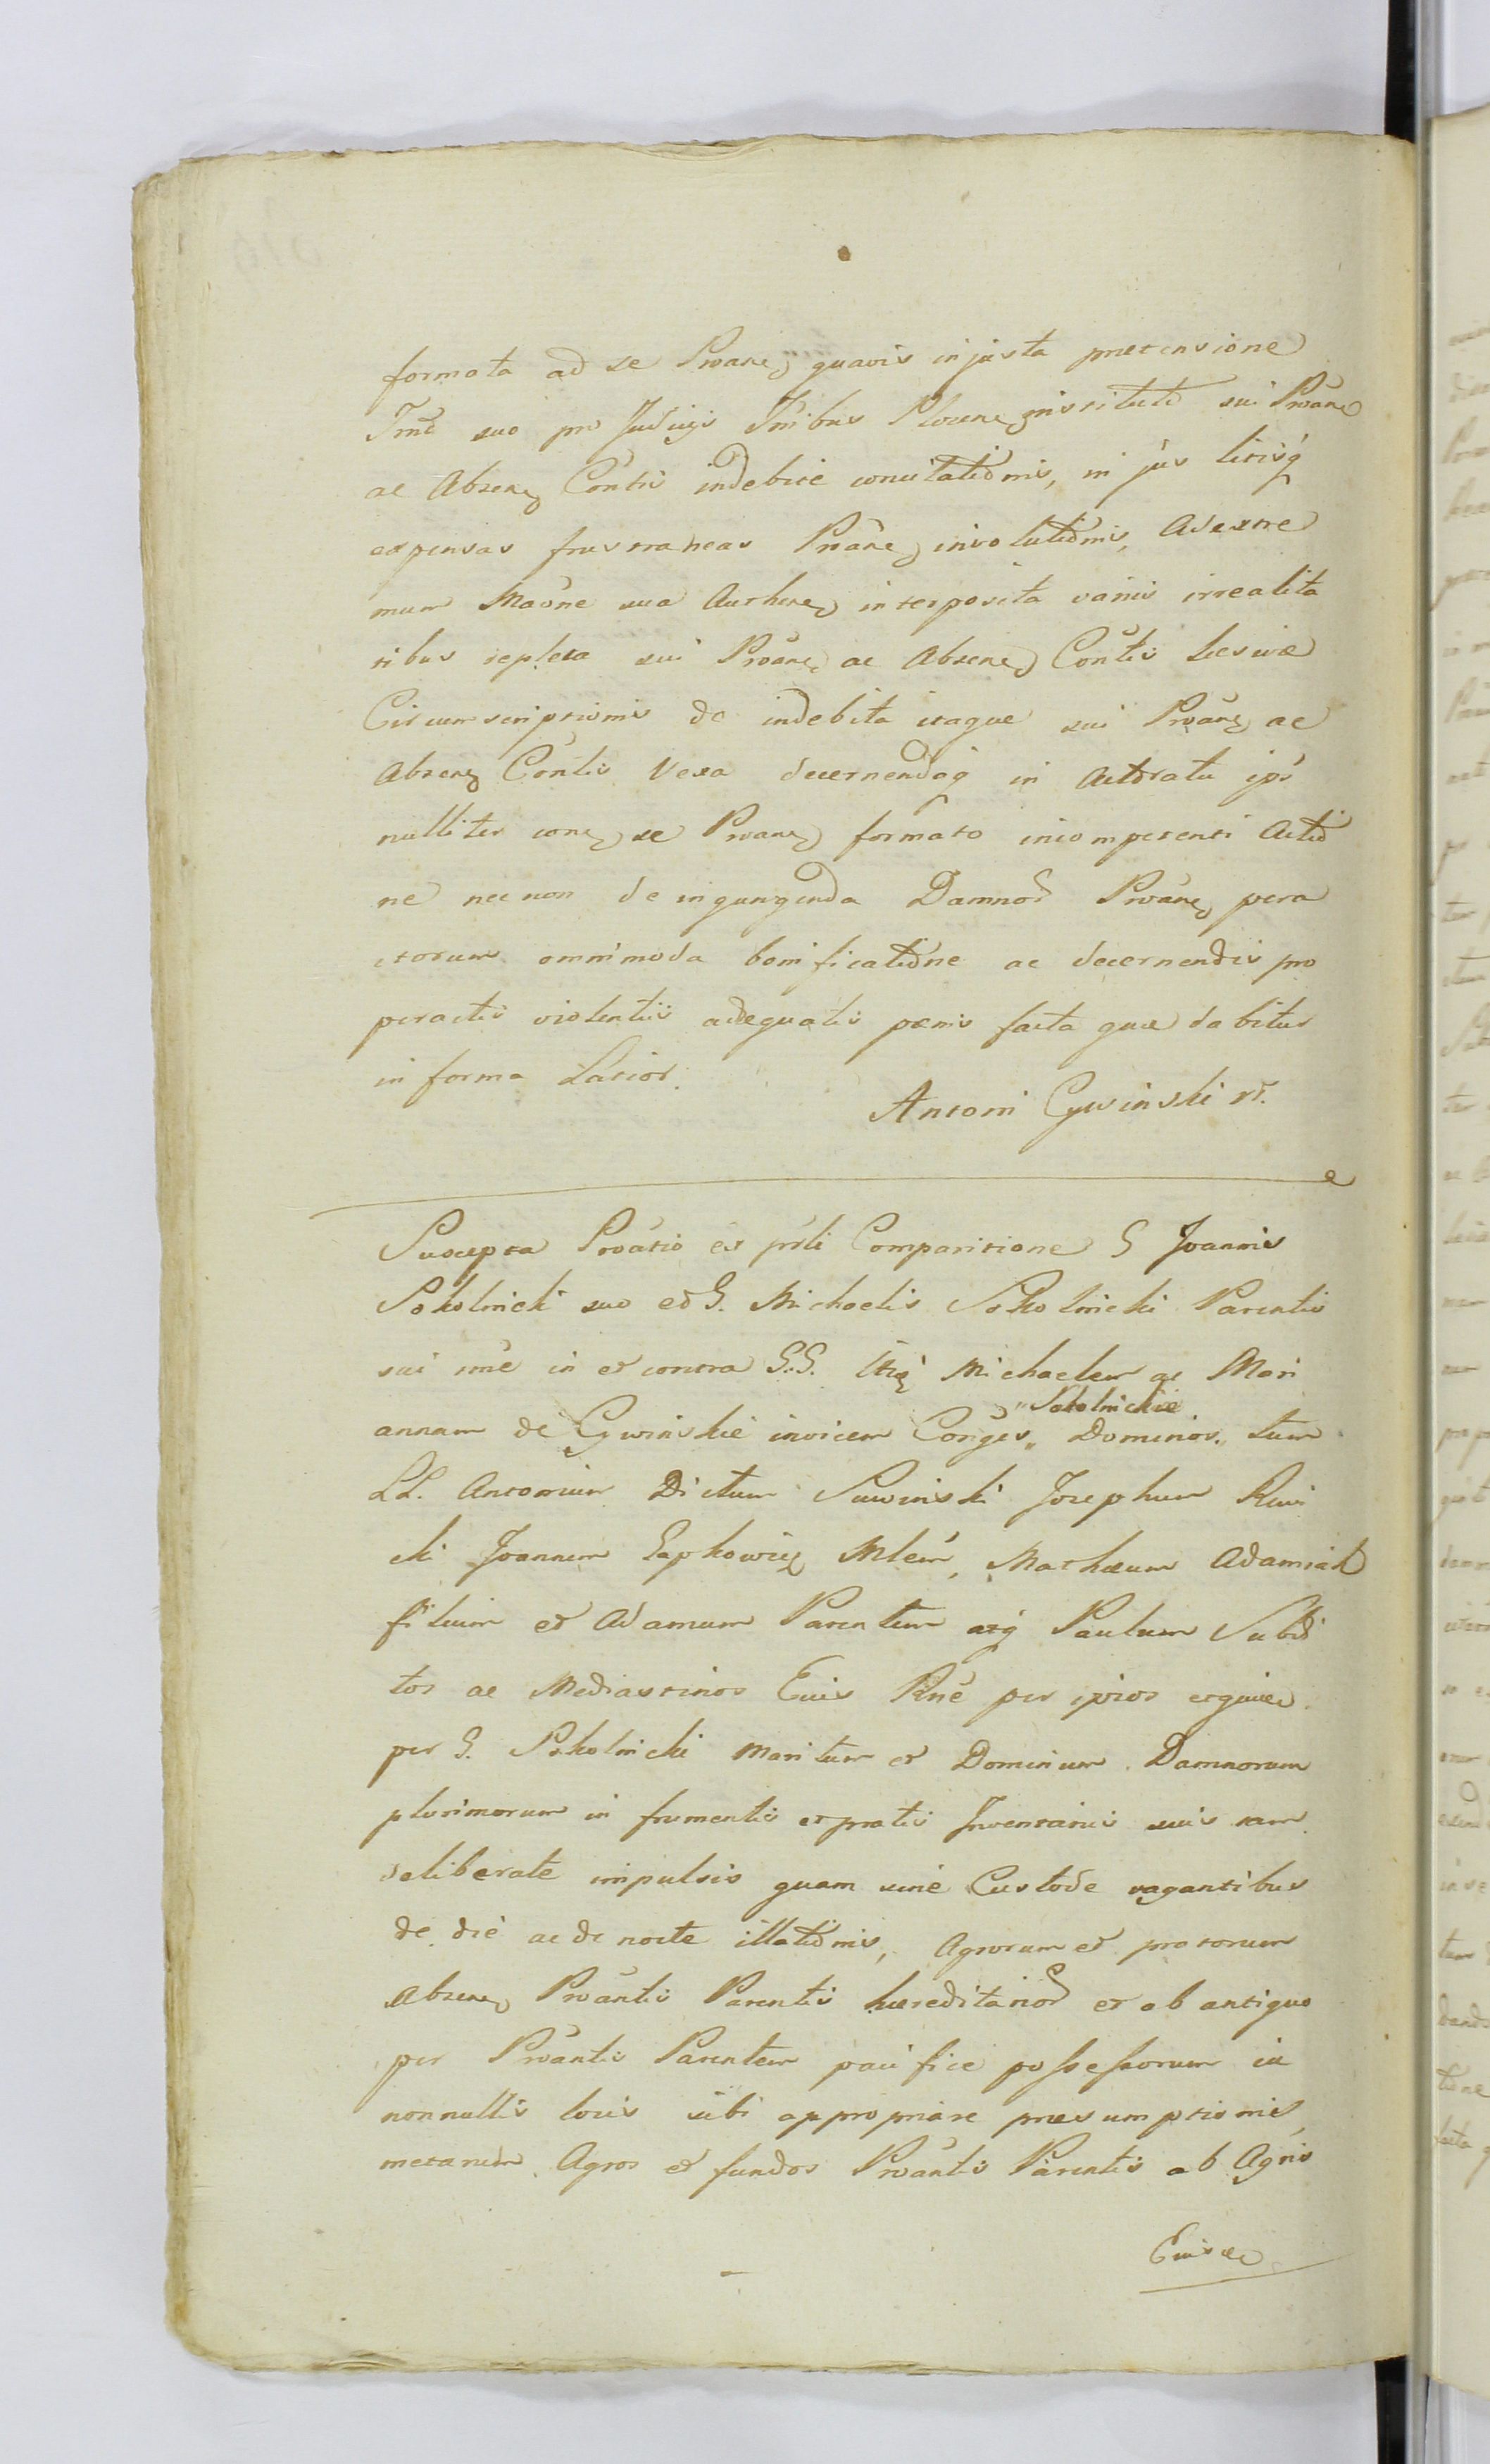 formata ad se Proane quavis injusta praetensione
Tmd suo pro Judicys Tribus Plocens institutd sui Prôane
ac Absene Côntis indebite concitatiônis, in jus litisq
expensas frustraneas Prôane involutiônis, ad extre
mum Maône sua Authene interposita variis irrealita
tibus repleta sui Prôane ac Absene Côntis lesivae
Circumscriptionis de indebita itaque sui Proane ac
Absene Côntis Vexa decernendaq in Actoratu ips
nulliter conq se Proane formato incompetenti Actiô
ne nec non de injungenda Damnor Proane pera
ctorum omnimoda bonificatione ac decernendis pro
peractis violentiis adequatis paenis facta quae dabitur
in forma Latior.
Antoni Cywinski
Suscepta Proatio es prsti Comparitione G Joannis
Sokolnicki suo ed G. Michaelis Sokolnicki Parentis
sui nne in et contra G.G. Michaelem ac Mari
annam de Cywinskie invicem Conges „ Dominos „ tum
„ Sokolnickie
LL. Antonium Dictum Suwinski Josephum Ruvi
cki Joannem Lapkowicz Mathaeum Adamiak
filium et Adamum Parentem atq Paulum Subdi
tos ac Mediastinos Euis Rne per ipsos
per G. Sokolnicki Maritum et Dominum Damnorum
plurimorum in frumentis et pratis Inventariis suis tam
deliberate impulsis quam sine Custode vagantibus
de die ac de nocte illatiônis, Agrorum et pratorum
Absene Proântis Parentis haereditarior et ab antiquo
per Proântis Parentem pacifice possessorum in
nonnullis locis sibi appropriare praesumptionis,
metarum Agros et fundos Proântis Parentis ab Agris